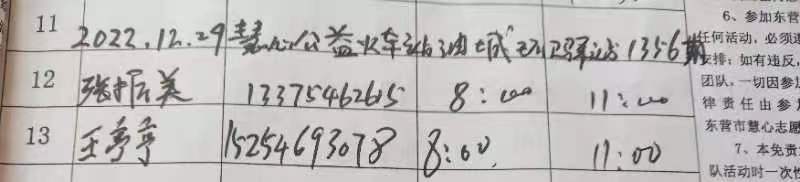 11 2022.12.29慧心公益火车站油城 驿站1356期
12 张振美 13375462615 8:00 11:00
13 王亭亭 15254693078 8:00 11:00
6、参加东营
任何活动，必须遵
安排；如有违反，
团队，一切因参加
律责任由参加
东营市慧心志愿
7、本免责
队活动时一次性